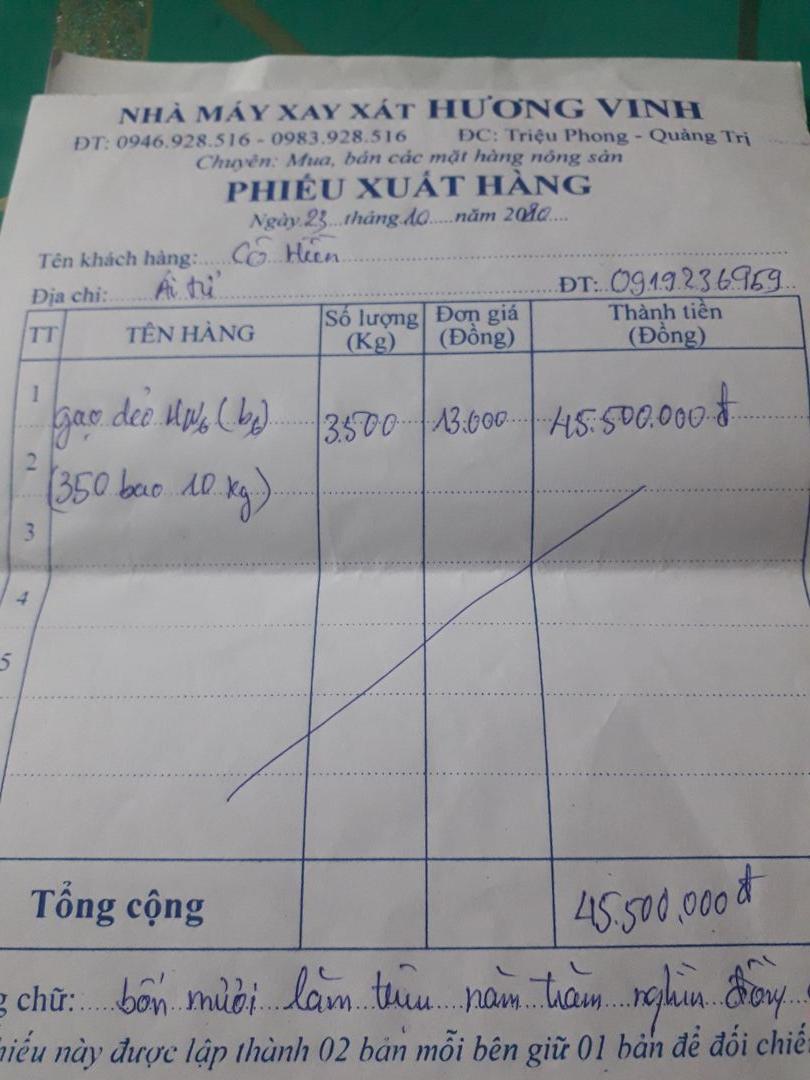 NHÀ MÁY XAY XÁT HƯƠNG VINH
ĐT: 0946.928.516 - 0983.928.516 ĐC: Triệu Phong - Quảng Trị
Chuyên: Mua, bán các mặt hàng nông sản
PHIẾU XUẤT HÀNG
Ngày 23 tháng 10 năm 2020
Tên khách hàng: Cô Hiền
Địa chỉ: Ái tử ĐT: 0919236959
TT TÊN HÀNG Số lượng (Kg) Đơn giá (Đồng) Thành tiền (Đồng)
1 gạo dẻo HN6 (b6) 3.500 13.000 45.500.000 đ
2 (350 bao 10 kg)
3
4
5
Tổng cộng 45.500.000 đ
g chữ: bốn mươi lăm triệu năm trăm nghìn đồng
hiếu này được lập thành 02 bản mỗi bên giữ 01 bản để đối chiế